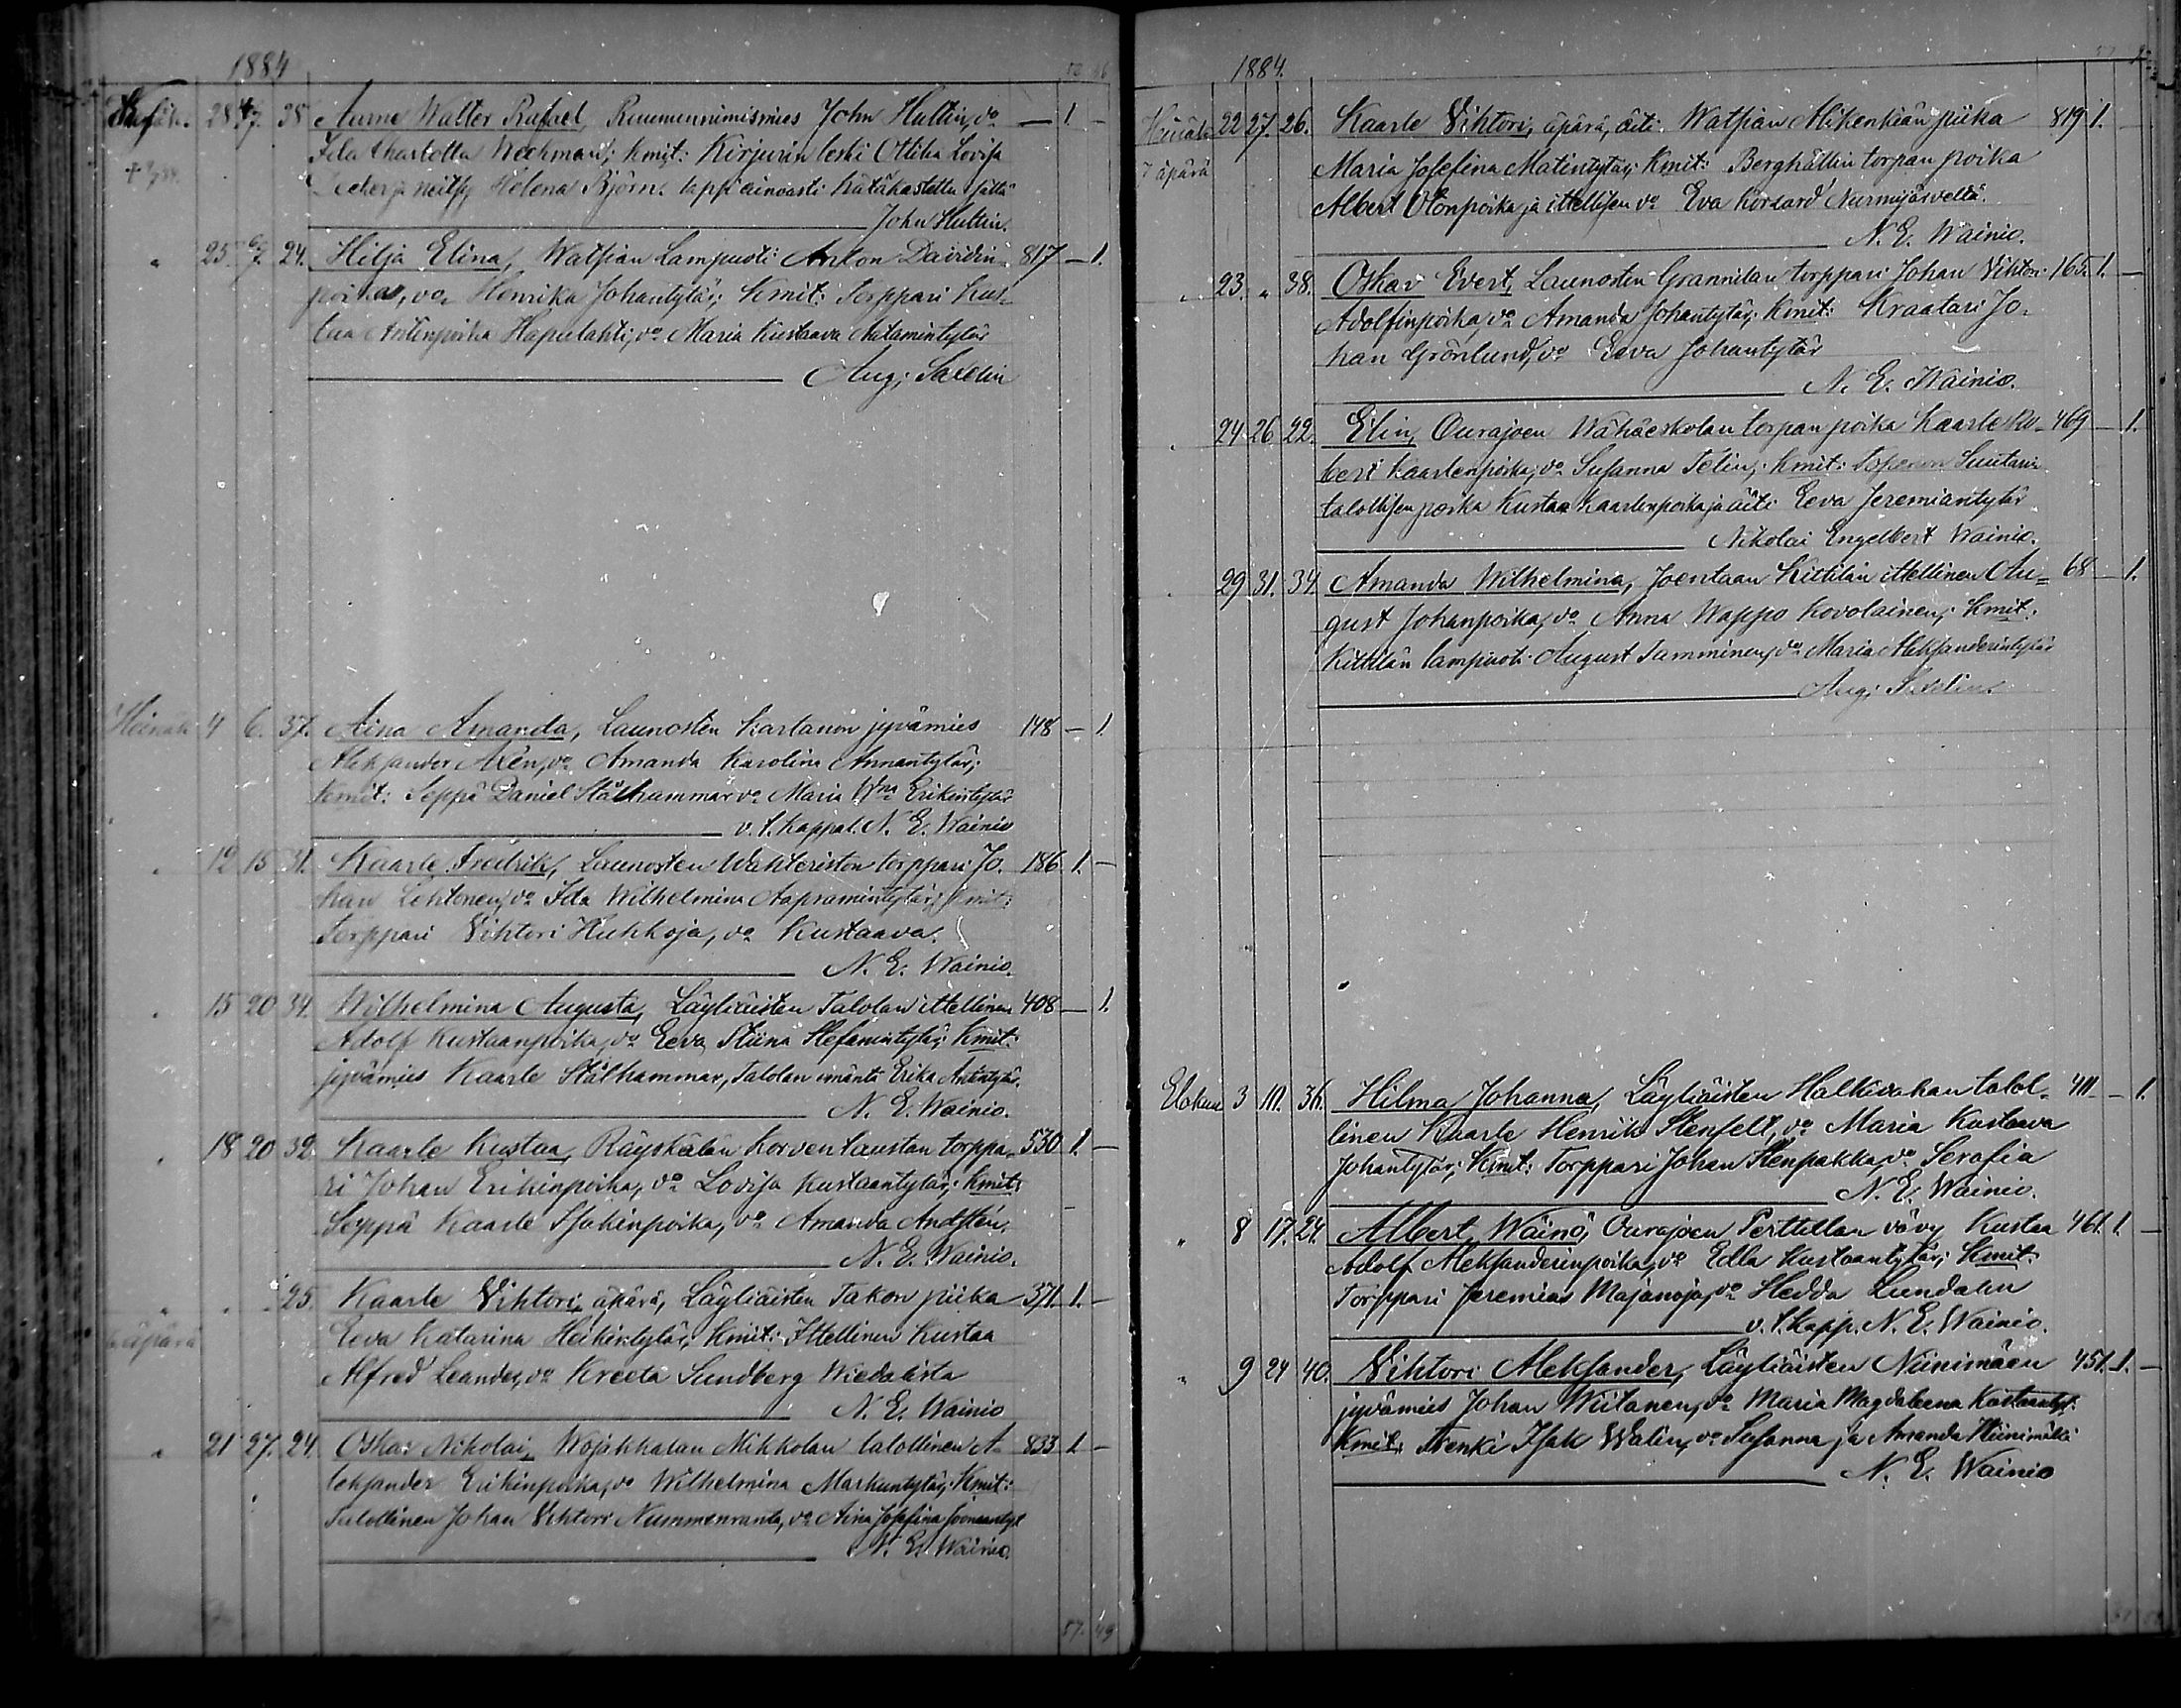 1884
Kesäk. 28 4/7. 38 Aarne Walter Rafael, Ruununnimismies John Hultin, vo — 1 -
Ida Charlotta Weckman; kmit: Kirjurin leski Ottilia Lovisa
ja neitsy Helena Björn. lapsi ainoasti hätäkastettu
John Hultin.
„ 25 6/7. 24. Hilja Elina, Watsian Lampuoti Anton Davidin- 817 — 1.
poika, vo Henrika Johantytär; kmit: Torppari Kus-
taa Antinpoika Hapulahti, vo Maria Kustaava Aatamintytär
Aug. Saxelin
Heinäk 4 6. 37. Aina Amanda, Launosten Kartanon jyvämies 148 — 1.
Aleksander Axen, vo Amanda Karolina Annantytär;
kmit: Seppä Daniel Stålhammar vo Maria Wna Erikintytär
v. t. Kappal. N. E. Wainio
„ 12 15 31. Kaarle Fredrik, Launosten Wahteriston torppari Jo- 186 1. —
han Lehtonen, vo Ida Wilhelmina Aapramintytär; kmit:
Torppari Vihtori Huhkoja, vo Kustaava.
N. E. Wainio.
„ 15 20 34. Wilhelmina Augusta, Läyliäisten Talolan ittellinen 408 — 1.
Adolf Kustaanpoika, vo Eeva Stiina Stefanintytär; Kmit:
jyvämies Kaarle Stålhammar, Talolan emäntä Erika Antintytär.
N. E. Wainio.
„ 18 20 32. Kaarle Kustaa, Räyskälän Korvenlaustan torppa- 530 1. —
ri Johan Erikinpoika, vo Lovisa Kustaantytär; kmit:
Seppä Kaarle Isakinpoika, vo Amanda Andstén.
N. E. Wainio.
„ „ „ 25. Kaarle Vihtori, äpärä, Läyliäisten Takon piika 371. 1. —
äpärä Eeva Katarina Heikintytär, Kmit: Ittellinen Kustaa
Alfred Leander, vo Kreeta Sundberg Wiedalista
N. E. Wainio
„ 21 27. 24. Oskar Nikolai, Wojakkalan Mikkolan talollinen A- 833 1 —
leksander Erikinpoika, vo Wilhelmina Markuntytär; Kmit:
Talollinen Johan Vihtori Nummenranta, vo Aina Josefina Joonaantyt
N. E. Wainio.
57. 49
1884.
Heinäk 22 27. 26. Kaarle Vihtori, äpärä, äiti Watsian Mikenkiän piika 819 1. —
7 äpärä Maria Josefina Matintytär; Kmit: Berghällin torpan poika
Albert Otonpoika ja ittellisen vo Eva Korsard Nurmijärveltä.
N. E. Wainio.
„ 23. „ 38. Oskar Evert, Launosten Grannilan torppari Johan Vihtori 165. 1. —
Adolfinpoika, vo Amanda Johantytär; Kmit: Kraatari Jo-
han Grönlund, vo Eeva Johantytär
N. E. Wainio.
„ 24 26 22. Elin, Ourajoen Wähäeskolan torpan poika Kaarle Ro- 469 — 1.
bert Kaarlenpoika, vo Susanna Felin; Kmit: Suutari
talollisen poika Kustaa Kaarlenpoika ja äiti Eeva Jeremiantytär
Nikolai Engelbert Wainio.
„ 29 31. 34. Amanda Wilhelmina, Joentaan Kittilän ittellinen Au- 68 — 1.
gust Johanpoika, vo Anna Wappo Kovolainen; Kmit:
Kittilän lampuoti August Tamminen, vo Maria Aleksanderintytär
Aug. Saxelin
Elokuu 3 10. 36. Hilma Johanna, Läyliäisten Halkivahan talol- 411 — 1.
linen Kaarle Henrik Stenfelt, vo Maria Kustaava
Johantytär; Kmit: Torppari Johan Stenpakka, vo Serafia
N. E. Wainio.
„ 8 17. 24. Albert Wäinö, Ourajoen Perttillan vävy Kustaa 461. 1. —
Adolf Aleksanderinpoika, vo Edla Kustaantytär; Kmit:
Torppari Jeremias Majanoja, vo Hedda Lundalin
v. t. kapp. N. E. Wainio.
„ 9 24 40. Vihtori Aleksander, Läyliäisten Niinimäen 451. 1. —
jyvämies Johan Wiitanen, vo Maria Magdaleena Kustaantyt.
Kmit: Renki Isak Walin, vo Susanna ja Amanda Niinimäki
N. E. Wainio